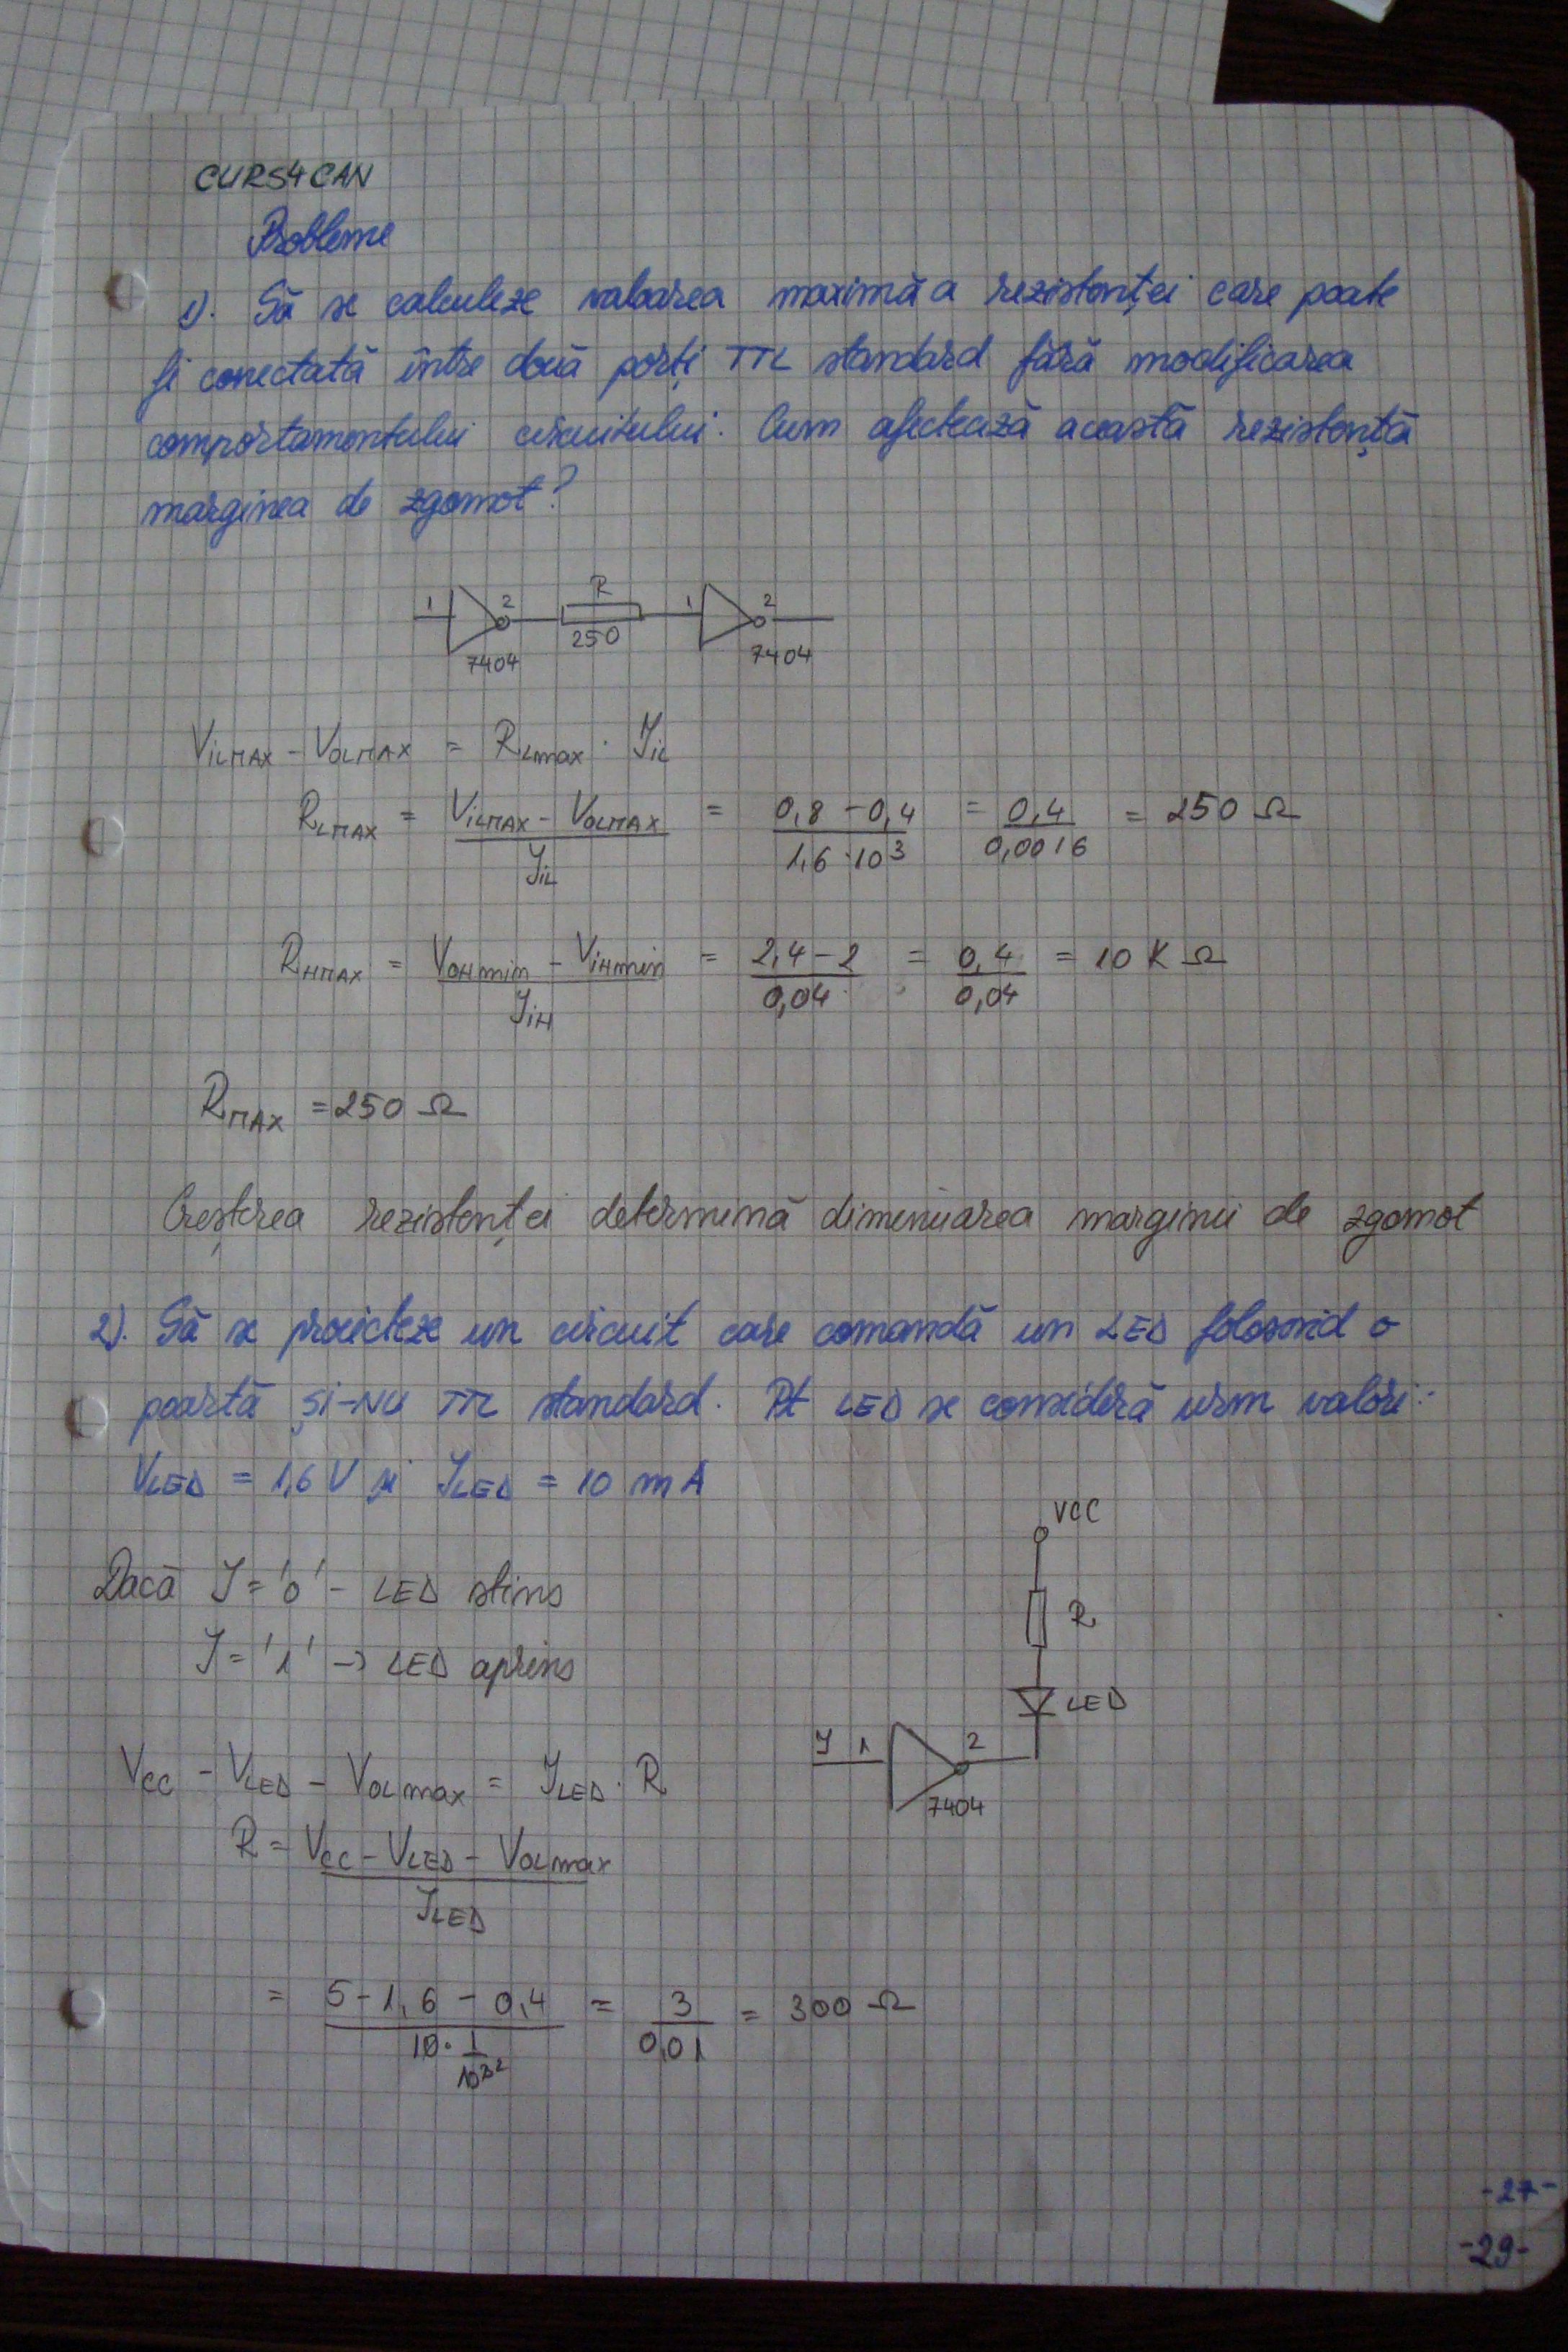 CURS4 CAN
Probleme
1). Să se calculeze valoarea maximă a rezistenței care poate
fi conectată între două porți TTL standard fără modificarea
comportamentului circuitului. Cum afectează această rezistență
marginea de zgomot?
1 2 R 1 2
250
7404 7404
VILMAX - VOLMAX = RLmax · IIL
RLMAX = (VILMAX - VOLMAX) / IIL = (0,8 - 0,4) / (1,6 · 10³) = 0,4 / 0,0016 = 250 Ω
RHMAX = (VOHmin - VIHmin) / IIH = (2,4 - 2) / 0,04 = 0,4 / 0,04 = 10 K Ω
RMAX = 250 Ω
Creșterea rezistenței determină diminuarea marginii de zgomot
2). Să se proiecteze un circuit care comandă un LED folosind o
poartă ȘI-NU TTL standard. Pt LED se consideră urm valori:
VLED = 1,6 V și ILED = 10 mA
VCC
Dacă I = '0' - LED stins
R
I = '1' → LED aprins
LED
I 1 2
7404
VCC - VLED - VOLmax = ILED · R
R = (VCC - VLED - VOLmax) / ILED
= (5 - 1,6 - 0,4) / (10 · 1/10³²) = 3 / 0,01 = 300 Ω
-27-
-29-